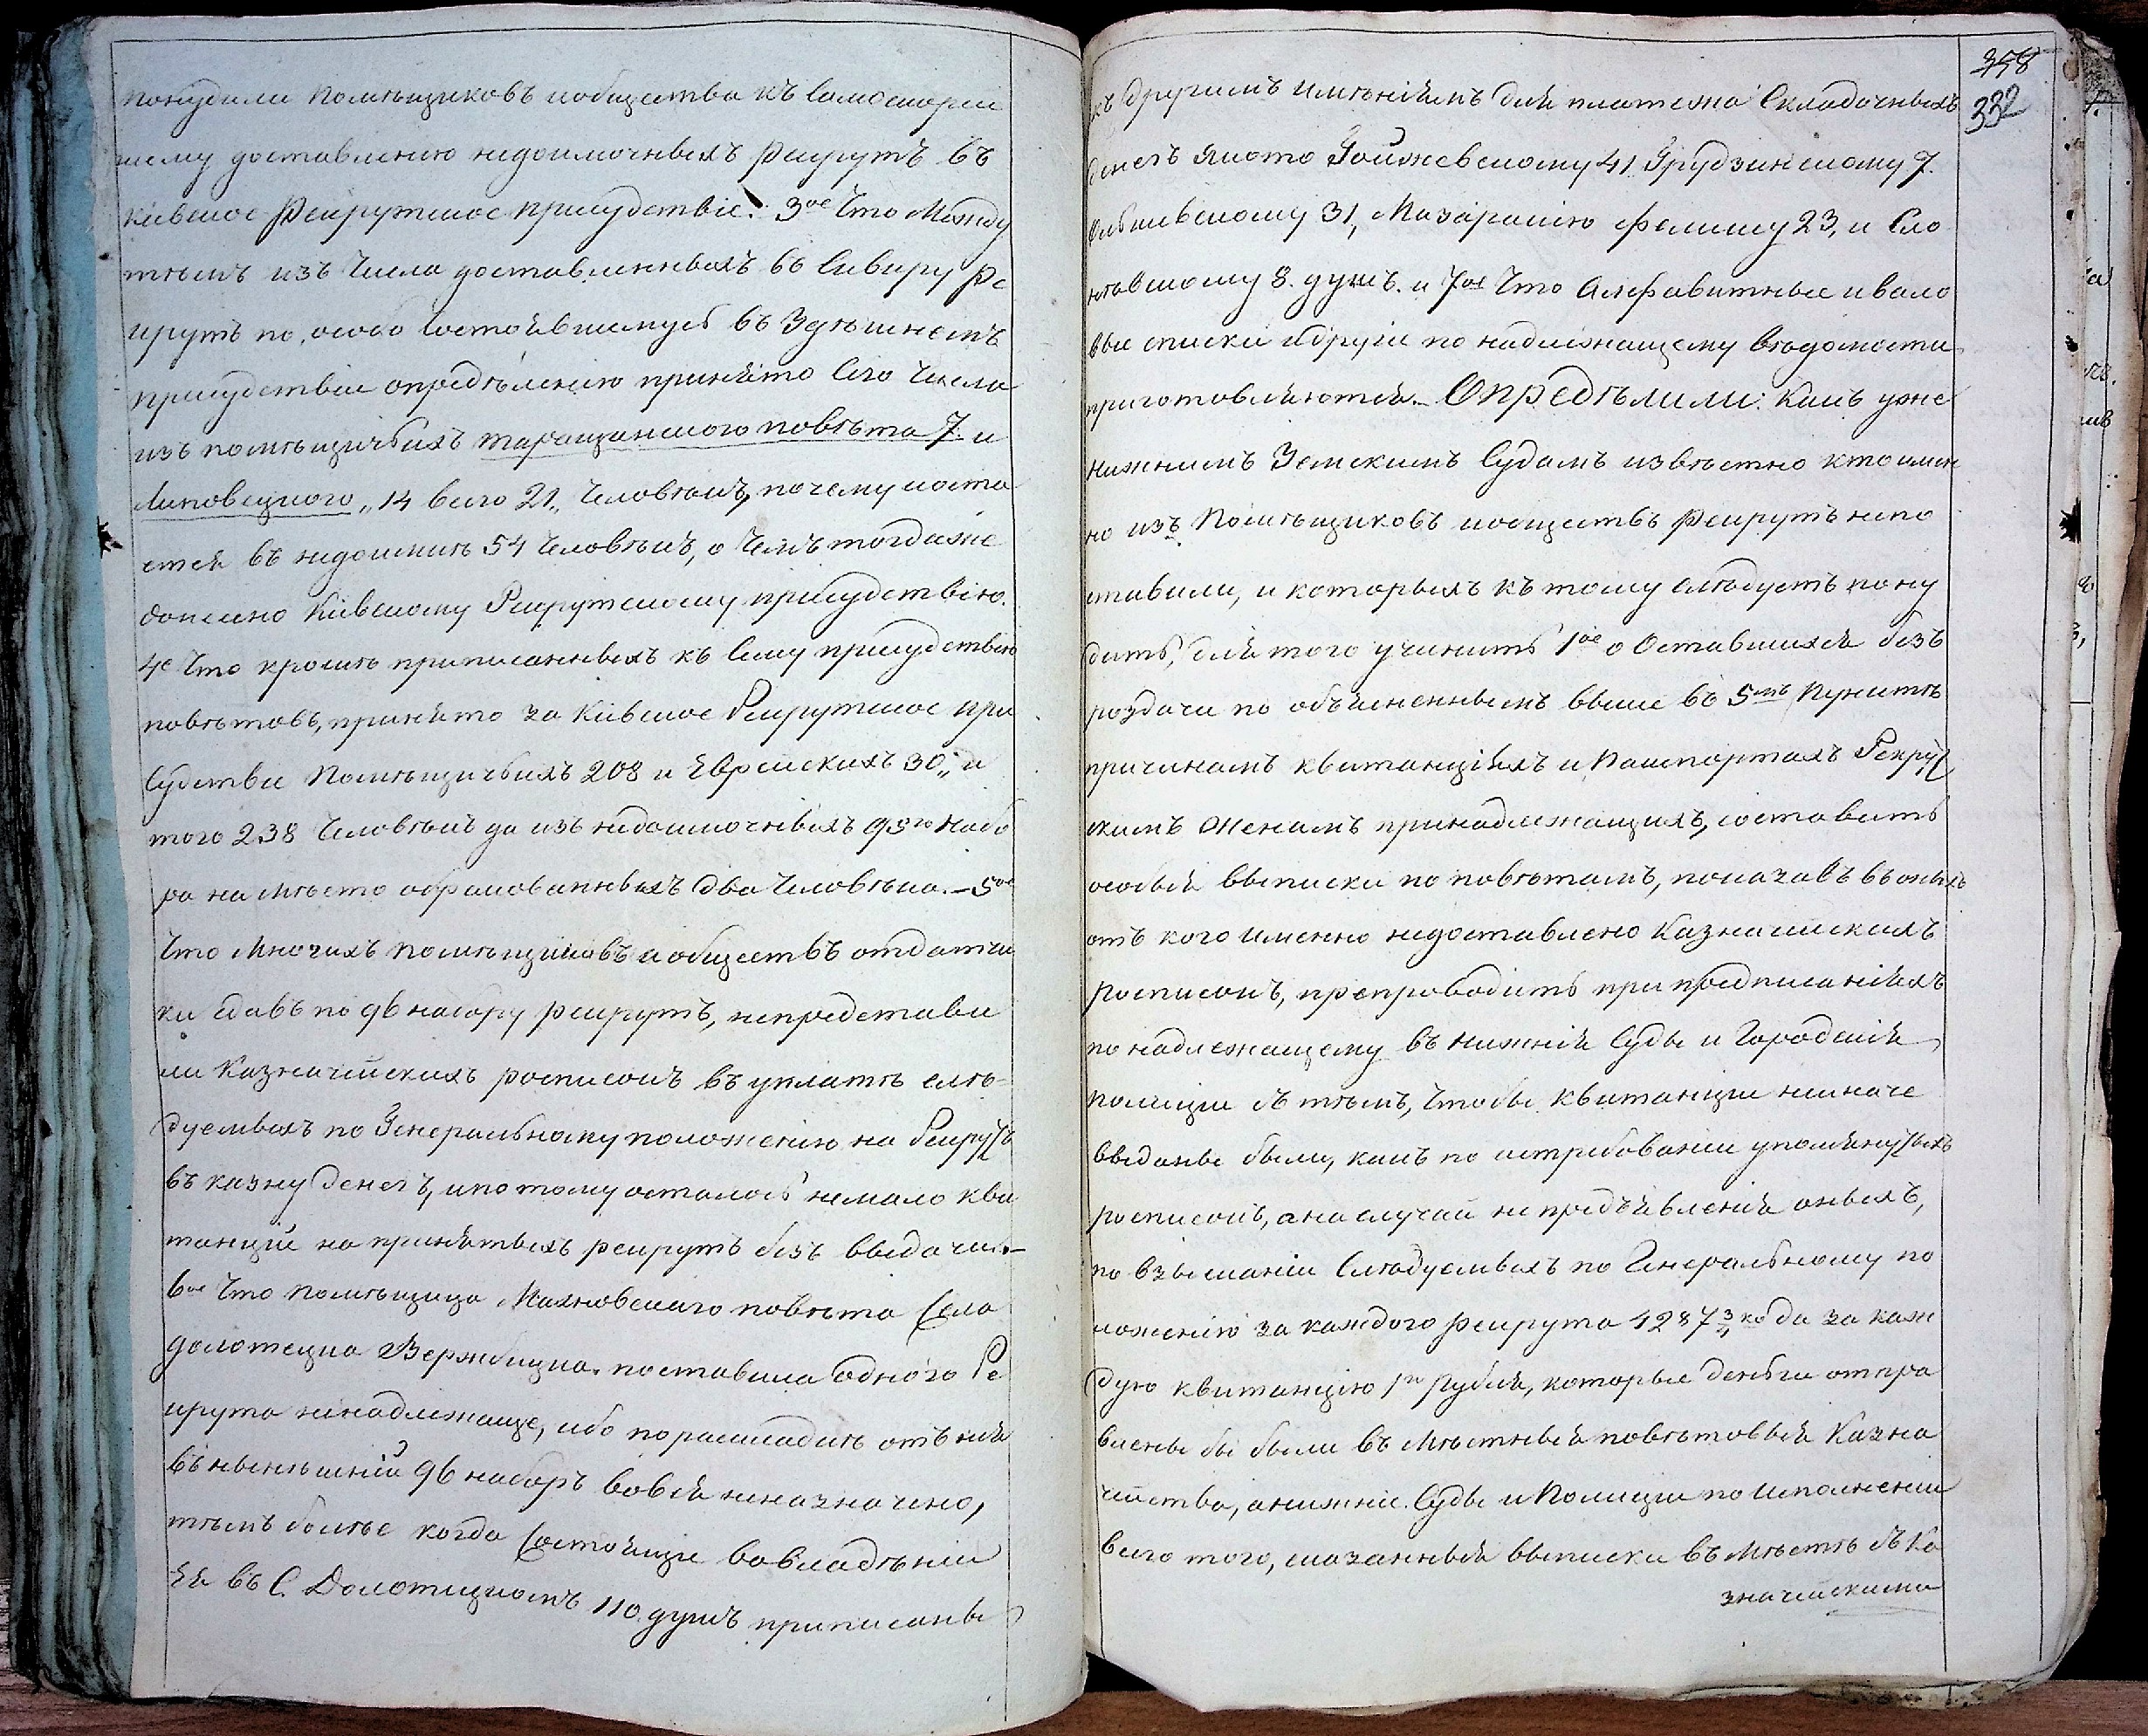 понудили помѣщиковъ и общества къ самоскорѣи
шему доставленію недоимочныхъ рекрутъ въ
Кіевское Рекрутское присудствіе. 3ое Что Между
тѣмъ изъ числа доставленныхъ въ Сквиру ре
крутъ по особо состоявшемусь въ Здѣшнемъ
присудствіи опредѣленію принято Сего Числа
изъ помѣщичьихъ таращанского повѣта 7. и
Липовецкого „14 всего 21„ Человѣкъ, почему иоста
ется въ недоимкѣ 54 Человѣкъ, о чемъ тогдаже
донесено Кіевскому Рекрутскому присудствію.
4е Что кромѣ приписанныхъ къ Сему присудствію
повѣтовъ, принято за Кіевское Рекрутское при
Судствіе Помѣщичьихъ 208 и Еврейскихъ 30„ и
того 238 Человѣкъ да изъ недоимочныхъ 95го Набо
ра на мѣсто обракованныхъ два Человѣка. – 5ое
Что Многихъ помѣщиковъ и обществъ отдатчи
ки здавъ по 96 набору рекрутъ, непредстави
ли Казначейскихъ росписокъ въ уплатѣ слѣ-
дуемыхъ по Генеральному положенію на Рекрутъ
въ казну денегъ, и по тому осталось немало кви
танцій на принятыхъ рекрутъ безъ выдачи. –
6ое Что помѣщица Махновскаго повѣта Села
долотецка Вержбицка поставила одного Ре
крута ненадлежаще, ибо по раскладкѣ отъ ней
въ нынѣшній 96 наборъ вовся неназначено,
тѣмъ болѣе когда Состоящіе вовладѣніи
Ея въ С. Долотецкомъ 110. душъ приписаны
358
332
къ другимъ имѣніямъ для платежа Складочныхъ
денегъ якото Гоижевскому 41 Грудзинскому 7.
31, Мазаракію Феликсу 23, и Сло
8. душъ. и 7ое Что Алфавитные и вало
вые списки и другіе по надлежащему вѣдомости
приготовляются. – Опредѣлили: Какъ уже
нижнимъ Земскимъ Судамъ извѣстно кто имен
но изъ Помѣщиковъ иобществъ рекрутъ непо
ставили, и которыхъ къ тому слѣдуетъ пону
дить, для того учинить 1ое о Оставшихся безъ
роздачи по объясненнымъ выше въ 5мъ Пунктѣ
причинамъ квитанціяхъ и Пашпортахъ Рекрут
скимъ Женамъ принадлежащихъ, составить
особыя выписки по повѣтамъ, показавъ въ оныхъ
отъ кого именно недоставлено Казначейскихъ
росписокъ, препроводить при предписаніяхъ
по надлежащему въ нижнія Суды и Городскія
полиціи съ тѣмъ, Чтобы квитанціи неиначе
выданы были, какъ по истребованіи упомянутыхъ
росписокъ, а на случай не предъявленія оныхъ,
по взысканіи Слѣдуемыхъ по Генеральному по
ложенію за каждого рекрута 4287 3/4 ко да за каж
дую квитанцію рублю, которые деньги отпра
влены бы были въ Мѣстныя повѣтовыя Казна
чейства, а нижніе Суды и Полиціи по исполненіи
всего того, сказанныя выписки въ Мѣстѣ съ Ка
значейскими